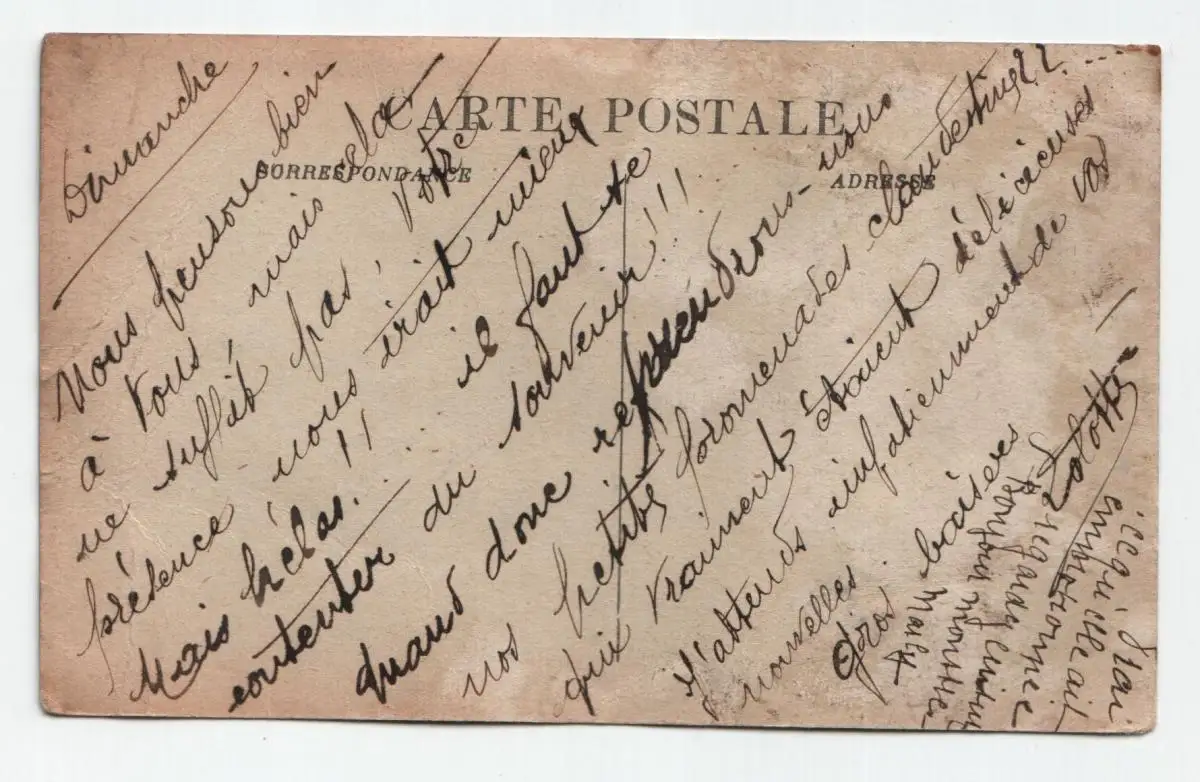 CARTE POSTALE
CORRESPONDANCE
ADRESSE
Dimanche
Nous pensons bien
à vous, mais cela
ne suffit pas, votre
présence nous irait mieux
Mais hélas!.. !! il faut se
contenter du souvenir!!!
quand donc reprendrons-nous
nos petites promenades clandestines??...
qui vraiment étaient délicieuses
J'attends impatiemment de vos
nouvelles.
Gros baisers
Bonjour